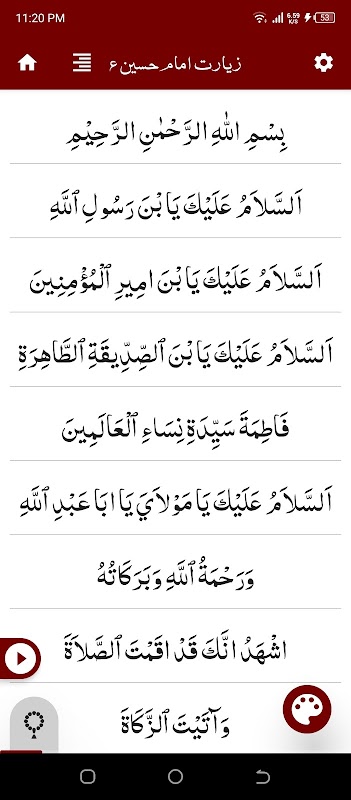 11:20 PM 6.59 K/S 53
زیارت امام حسین ع
بِسْمِ اللّٰهِ الرَّحْمٰنِ الرَّحِيْمِ
اَلسَّلاَمُ عَلَيْكَ يَا بْنَ رَسُولِ ٱللَّهِ
اَلسَّلاَمُ عَلَيْكَ يَا بْنَ امِيرِ ٱلْمُؤْمِنِينَ
اَلسَّلاَمُ عَلَيْكَ يَا بْنَ ٱلصِّدِّيقَةِ ٱلطَّاهِرَةِ
فَاطِمَةَ سَيِّدَةِ نِسَاءِ ٱلْعَالَمِينَ
اَلسَّلاَمُ عَلَيْكَ يَا مَوْلاَيَ يَا ابَا عَبْدِ ٱللَّهِ
وَرَحْمَةُ ٱللَّهِ وَبَرَكَاتُهُ
اشْهَدُ انَّكَ قَدْ اقَمْتَ ٱلصَّلاَةَ
وَآتَيْتَ ٱلزَّكَاةَ